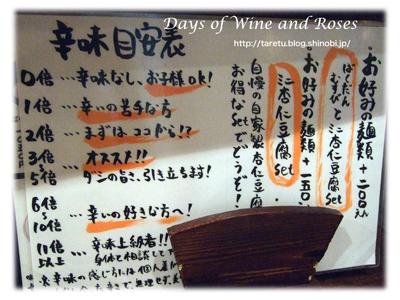 Days of Wine and Roses
http://taretu.blog.shinobi.jp/
辛味目安表
0倍…辛味なし、お子様OK!
1倍…辛いの苦手な方
2倍…まずはココから!?
3倍…オススメ!!
5倍…ダシの旨さ、引き立ちます!
6倍
〜
10倍…辛いの好きな方へ!
11倍
以上…辛味上級者!!
身体と相談して
お好みの麺類+二〇〇えん
ばくだんむすびとミニ杏仁豆腐set
お好みの麺類+一五〇
ミニ杏仁豆腐set
自慢の自家製杏仁豆腐
お得なSetでどうぞ!